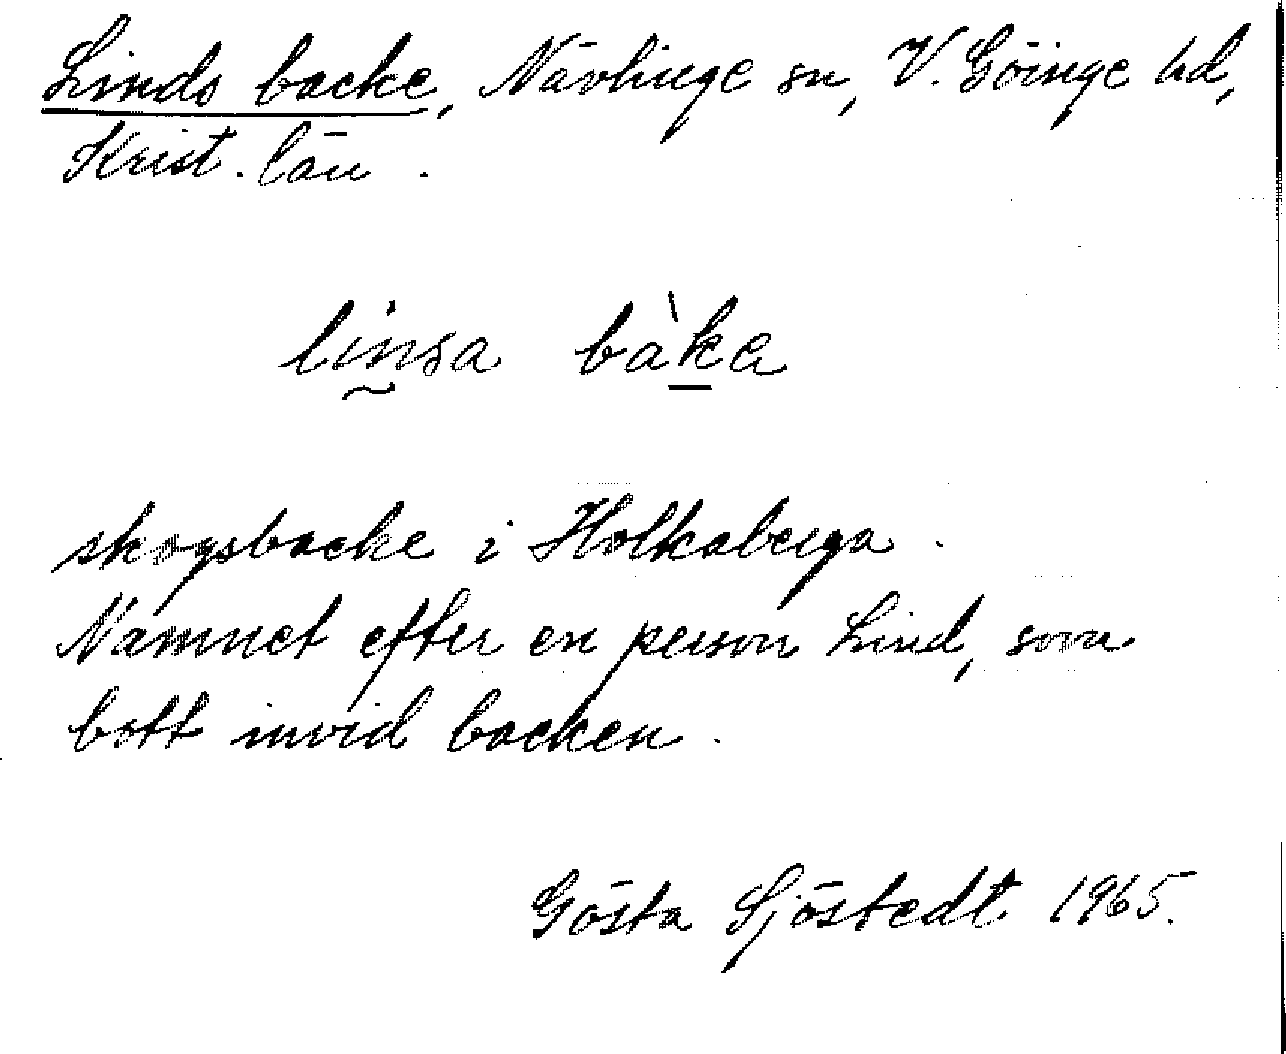 Linds backe, Nävlinge sn, V. Göinge hd,
Krist. län.
linsa bàka
skogsbacke i Holkaberga.
Namnet efter en person Lind, som
bott invid backen.
Gösta Sjöstedt 1965.